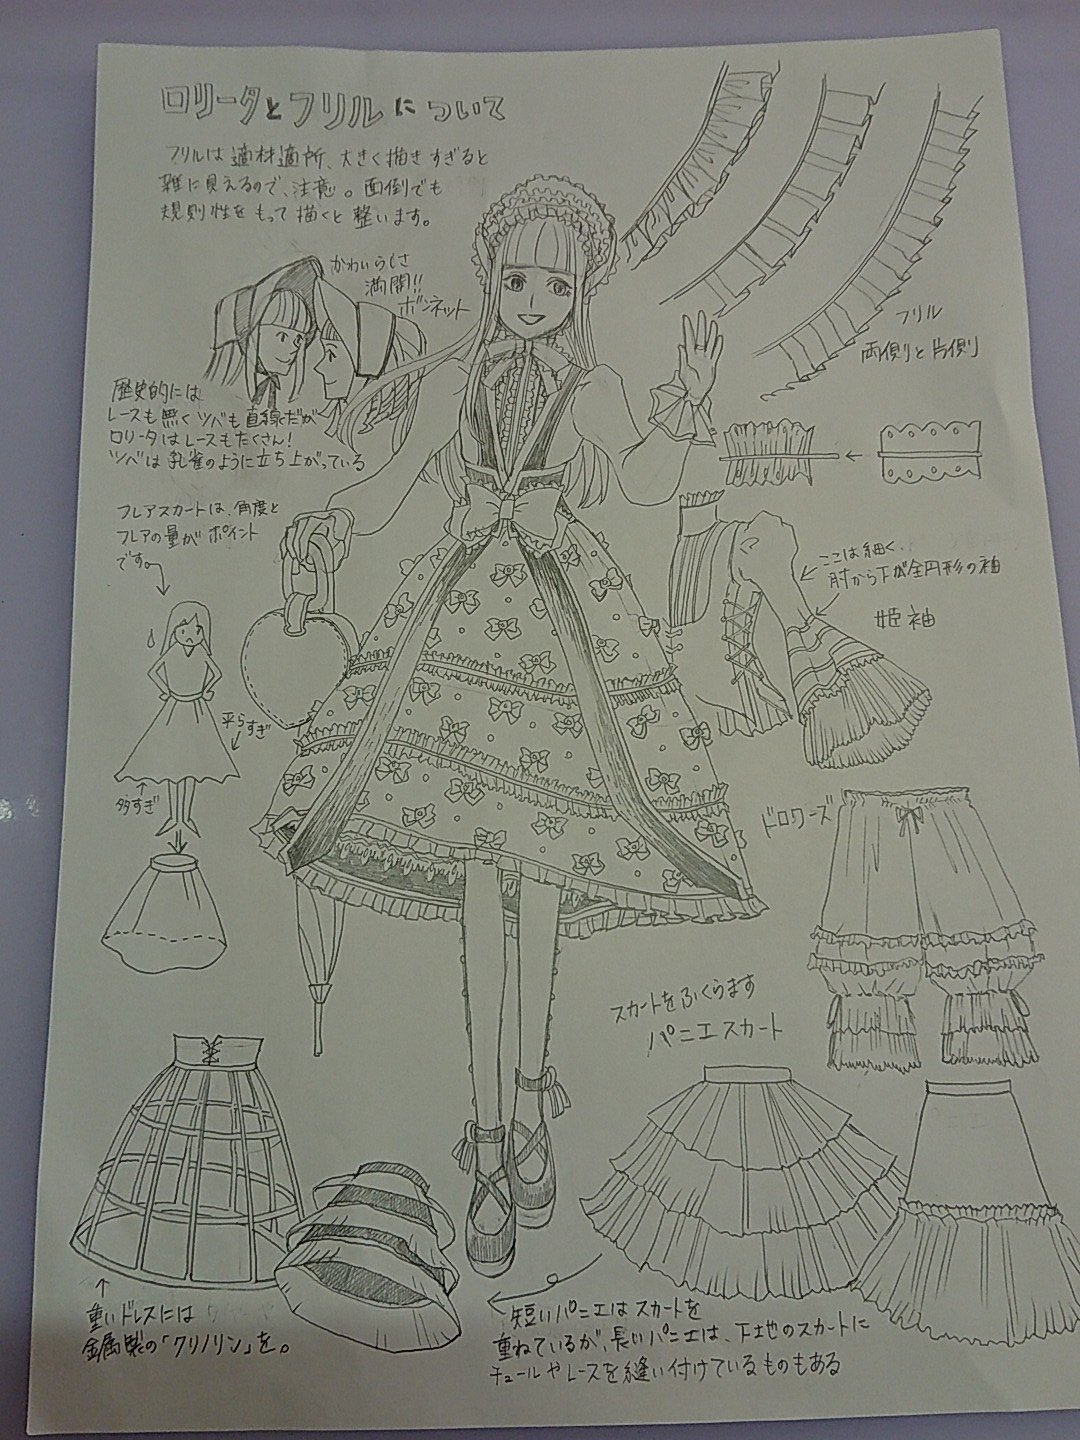 ロリータとフリルについて
フリルは適材適所、大きく描きすぎると
雑に見えるので、注意。面倒でも
規則性をもって描くと整います。
かわいらしさ
満開!!
ボンネット
歴史的には
レースも無くツバも直線だが
ロリータはレースもたくさん!
ツバは孔雀のように立ち上がっている
フリル
両側と片側
フレアスカートは、角度と
フレアの量がポイント
です。
ここは細く、
肘から下が全円形の袖
姫袖
平らすぎ
多すぎ
ドロワーズ
スカートをふくらます
パニエスカート
重いドレスには
金属製の「クリノリン」を。
短いパニエはスカートを
重ねているが、長いパニエは、下地のスカートに
チュールやレースを縫い付けているものもある